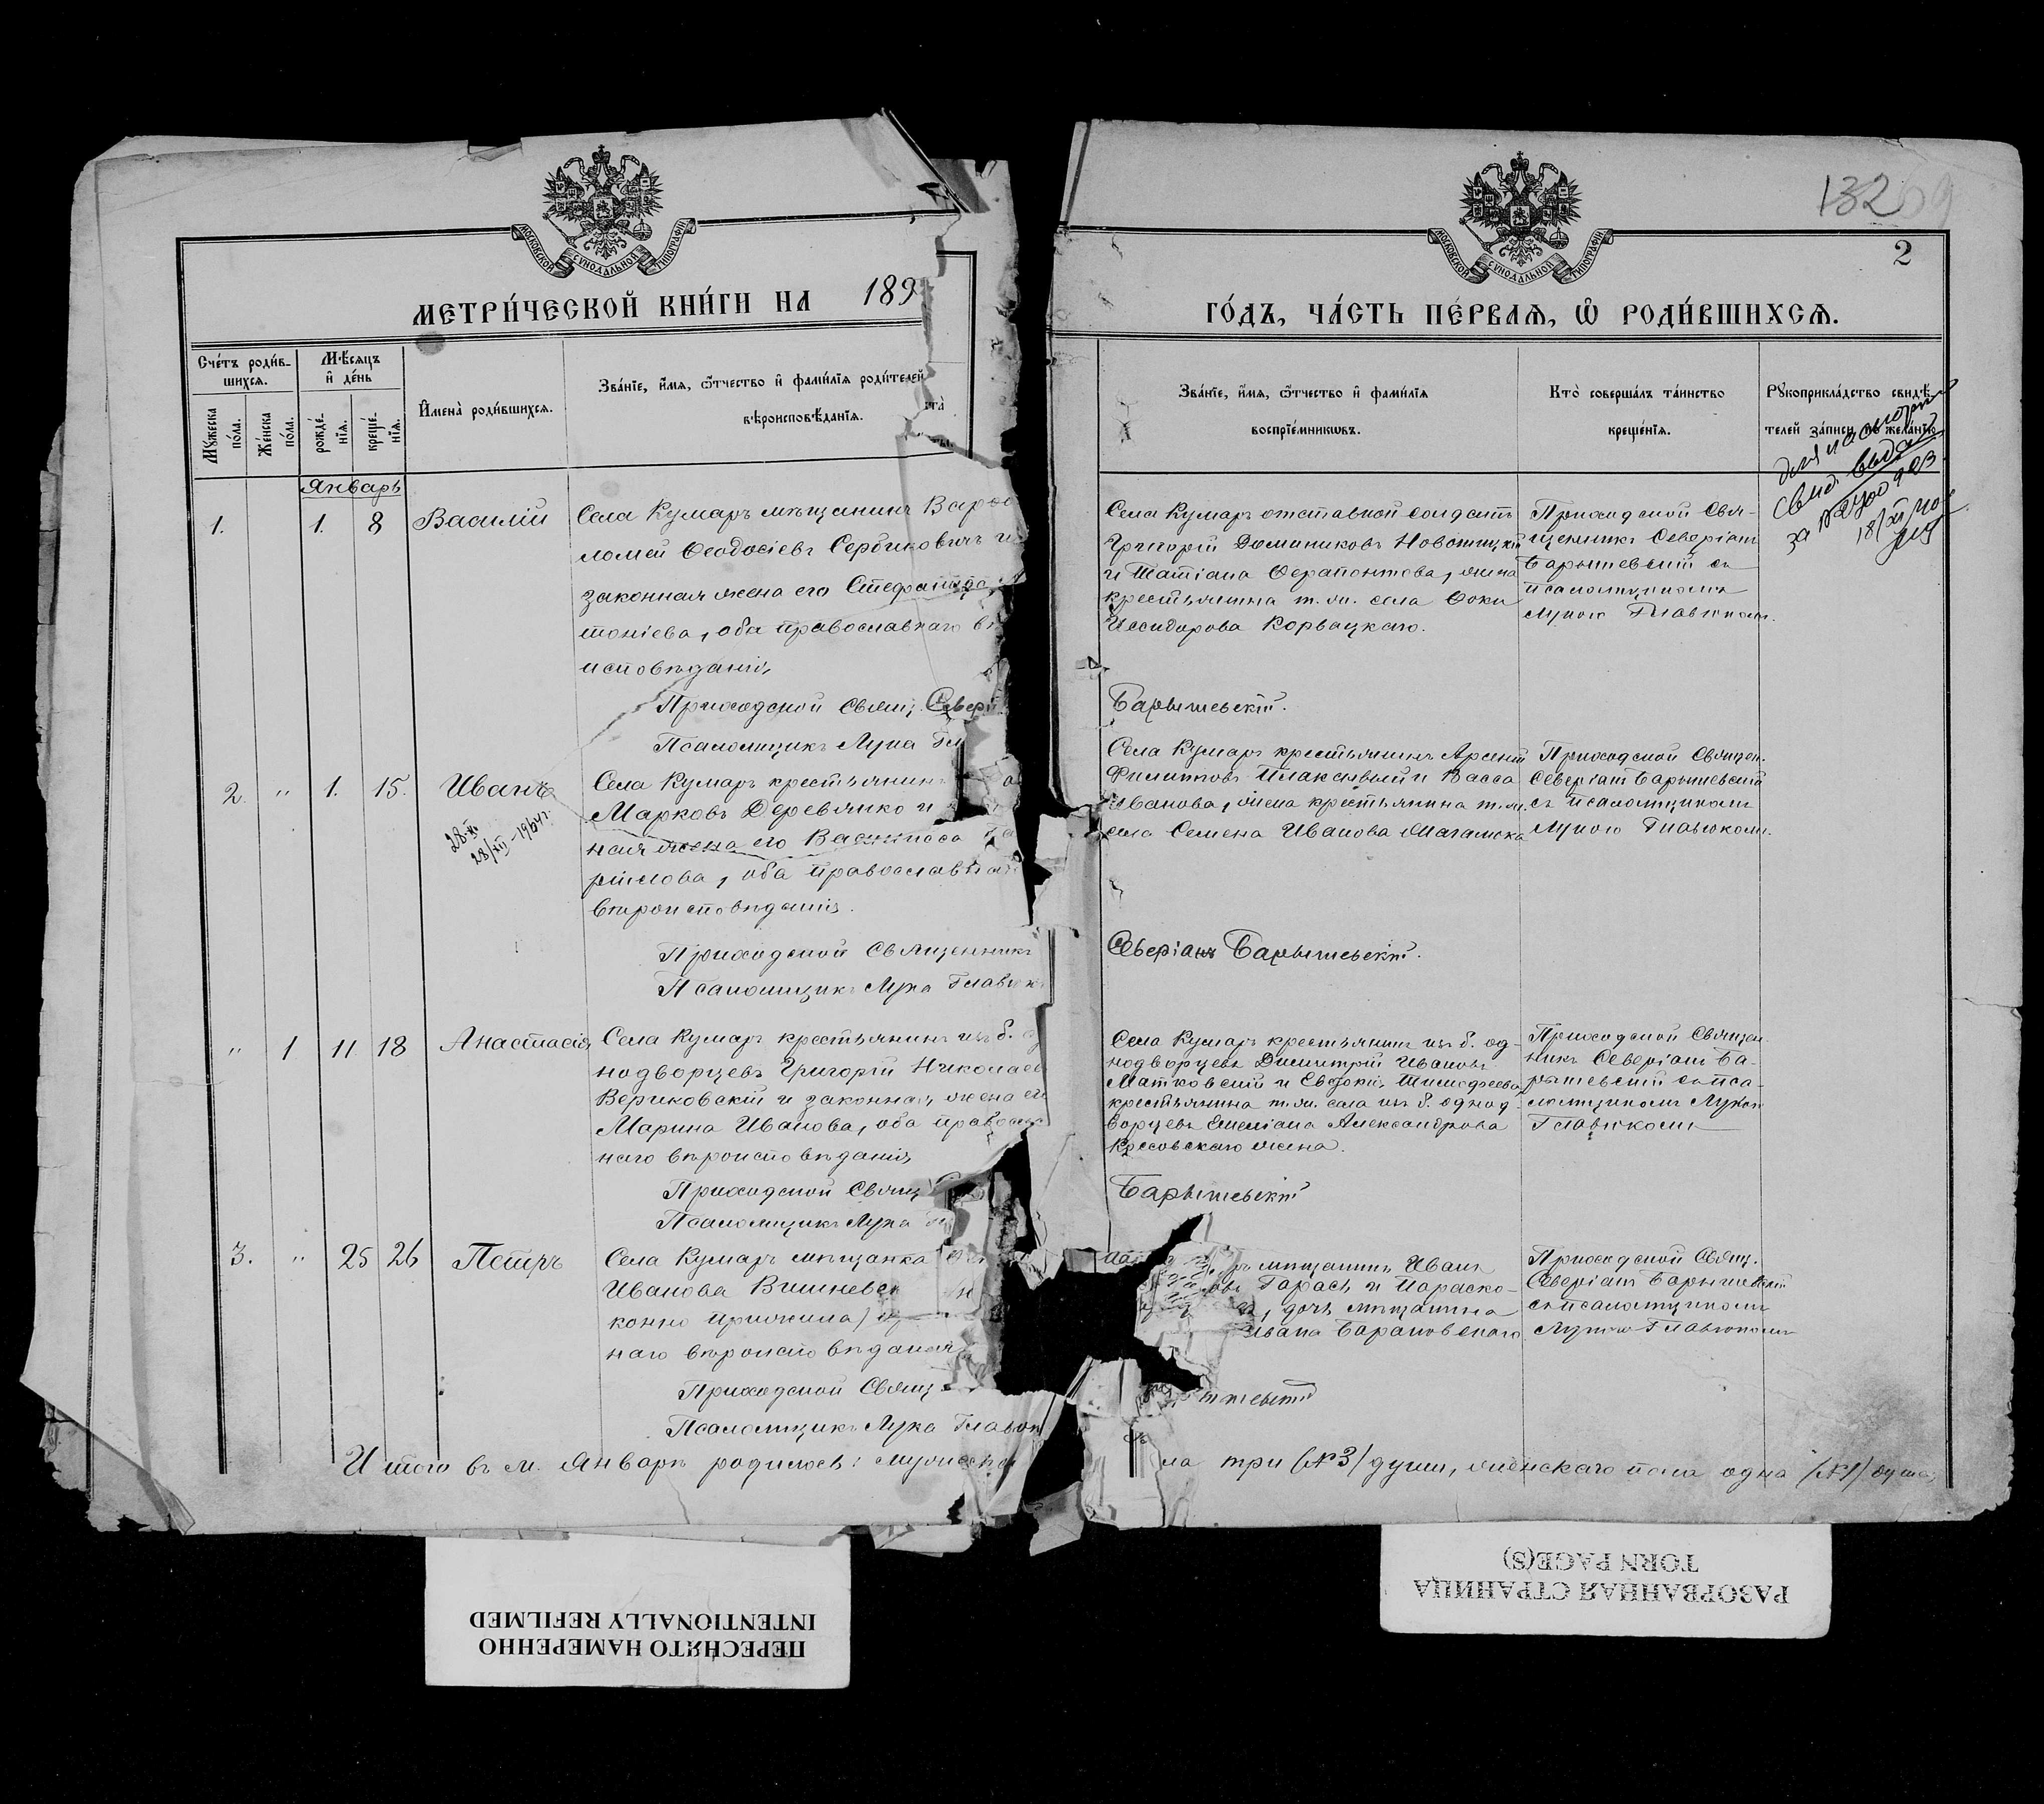 МОСКОВСКОЙ СѴНОДАЛЬНОЙ ТИПОГРАФІИ
МЕТРИ́ЧЕСКОЙ КНИ́ГИ НА 189
Сче́тъ роди́в-
шихсѧ.
Мꙋжеска по́ла.
Же́нска по́ла.
Мѣ́сѧцъ
и҆ де́нь
рожде́-
нїѧ.
креще́-
нїѧ.
И҆мена̀ роди́вшихсѧ.
Зва́нїе, и҆́мѧ, ѻ҆́тчество и҆ фами́лїѧ роди́телей
вѣроисповѣ́данїѧ.
Январь
1. 1. 8 Василій
Села Кумаръ мѣщанинъ Варѳо
ломей Ѳеодосіевъ Сербиновичъ и
законная жена его Стефанида
тоніева, оба православнаго вѣ
исповѣданія
Приходской Свящ. Северi
Псаломщикъ Лука Гл
2. " 1. 15. Иванъ
28/XII-1964г.
Села Кумаръ крестьянинъ
Марковъ Деревянко и
ная жена его Васс
оба православна
вѣроисповѣданія.
Приходской Священникъ
Псаломщикъ Лука Главюк
" 1 11 18 Анастасія
Села Кумаръ крестьянинъ изъ б. од
нодворцевъ Григорій Николаев
Вериковскій и законная жена ег
Марина Иванова, оба правосл
наго вѣроисповѣданія
Приходской Свящ
Псаломщикъ Лука Гл
3. " 25 26 Петръ
Села Кумаръ мѣщанка
Иванова Вишневск
конно прижила)
наго вѣроисповѣданія
Приходской Свящ
Псаломщикъ Лука Главюк
Итого въ м. Январѣ родилось: мужеска
132
2
МОСКОВСКОЙ СѴНОДАЛЬНОЙ ТИПОГРАФІИ
ГО́ДЪ, ЧА́СТЬ ПЕ́РВАѦ, Ѡ҆ РОДИ́ВШИХСѦ.
Зва́нїе, и҆́мѧ, ѻ҆́тчество и҆ фами́лїѧ
воспрїе́мникѡвъ.
Кто̀ соверша́лъ та́инство
креще́нїѧ.
Рꙋкоприкла́дство свидѣ́-
телей за́писи по жела́нїю
свид. выдан
18/XI
Села Кумаръ отставной солдатъ
Григорій Доминиковъ Новотицкій
и Татіана Ѳерапонтова, жена
крестьянина т. ж. села Ѳоки
Исидорова Корвацкаго.
Приходской Свя-
щенникъ Северіанъ
Барышевскій съ
псаломщикомъ
Лукою Главюкомъ.
Барышевскій.
Села Кумаръ крестьянинъ Арсеній
Филипповъ Плаксивый и Васса
Иванова, жена крестьянина т. ж.
села Семена Иванова
Приходской Священ.
Северіанъ Барышевскій
съ псаломщикомъ
Лукою Главюкомъ.
Северіанъ Барышевскій.
Села Кумаръ крестьянинъ изъ б. од-
нодворцевъ Димитрій Ивановъ
Матковскій и Евдокія Тимофеева
крестьянина т. ж. села изъ б. однод-
ворцевъ Емеліана Александрова
Кресовскаго жена.
Приходской Священ
никъ Северіанъ Ба-
рышевскій съ пса-
ломщикомъ Лукою
Главюкомъ
Барышевскій
ръ мѣщанинъ Иванъ
овъ Гарась и Параско-
дочь мѣщанина
Ивана Барановскаго
Приходской Свящ.
Северіанъ Барышевскій
съ псаломщикомъ
Лукою Главюкомъ
шевскій
ла три (№3) души, женскаго пола одна (№1) душа
ПЕРЕСНЯТО НАМЕРЕННО
INTENTIONALLY REFILMED
РАЗОРВАННАЯ СТРАНИЦА
TORN PAGE(S)